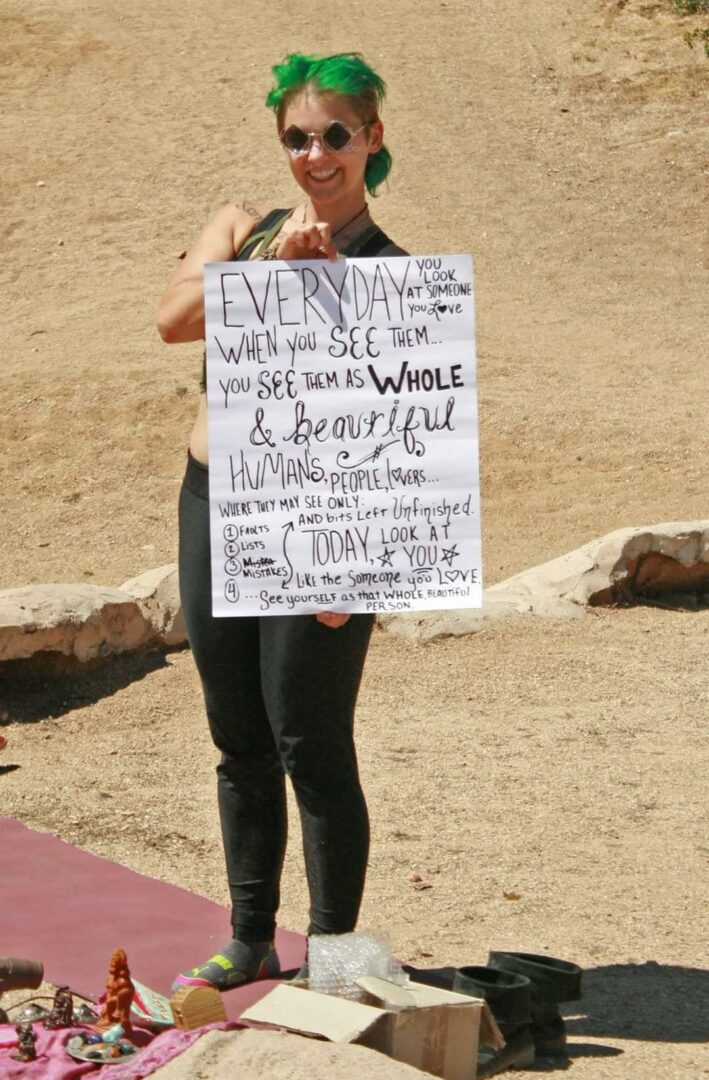 EVERYDAY YOU LOOK AT SOMEONE YOU LOVE
WHEN YOU SEE THEM...
YOU SEE THEM AS WHOLE
& beautiful
HUMANS, PEOPLE, LOVERS...
WHERE THEY MAY SEE ONLY:
AND bits Left Unfinished.
① FAULTS
② LISTS
③ MISTAKES
④
TODAY, LOOK AT
YOU
LIKE the Someone you LOVE.
... See yourSELF as that WHOLE, BEAUTIFUL
PERSON.